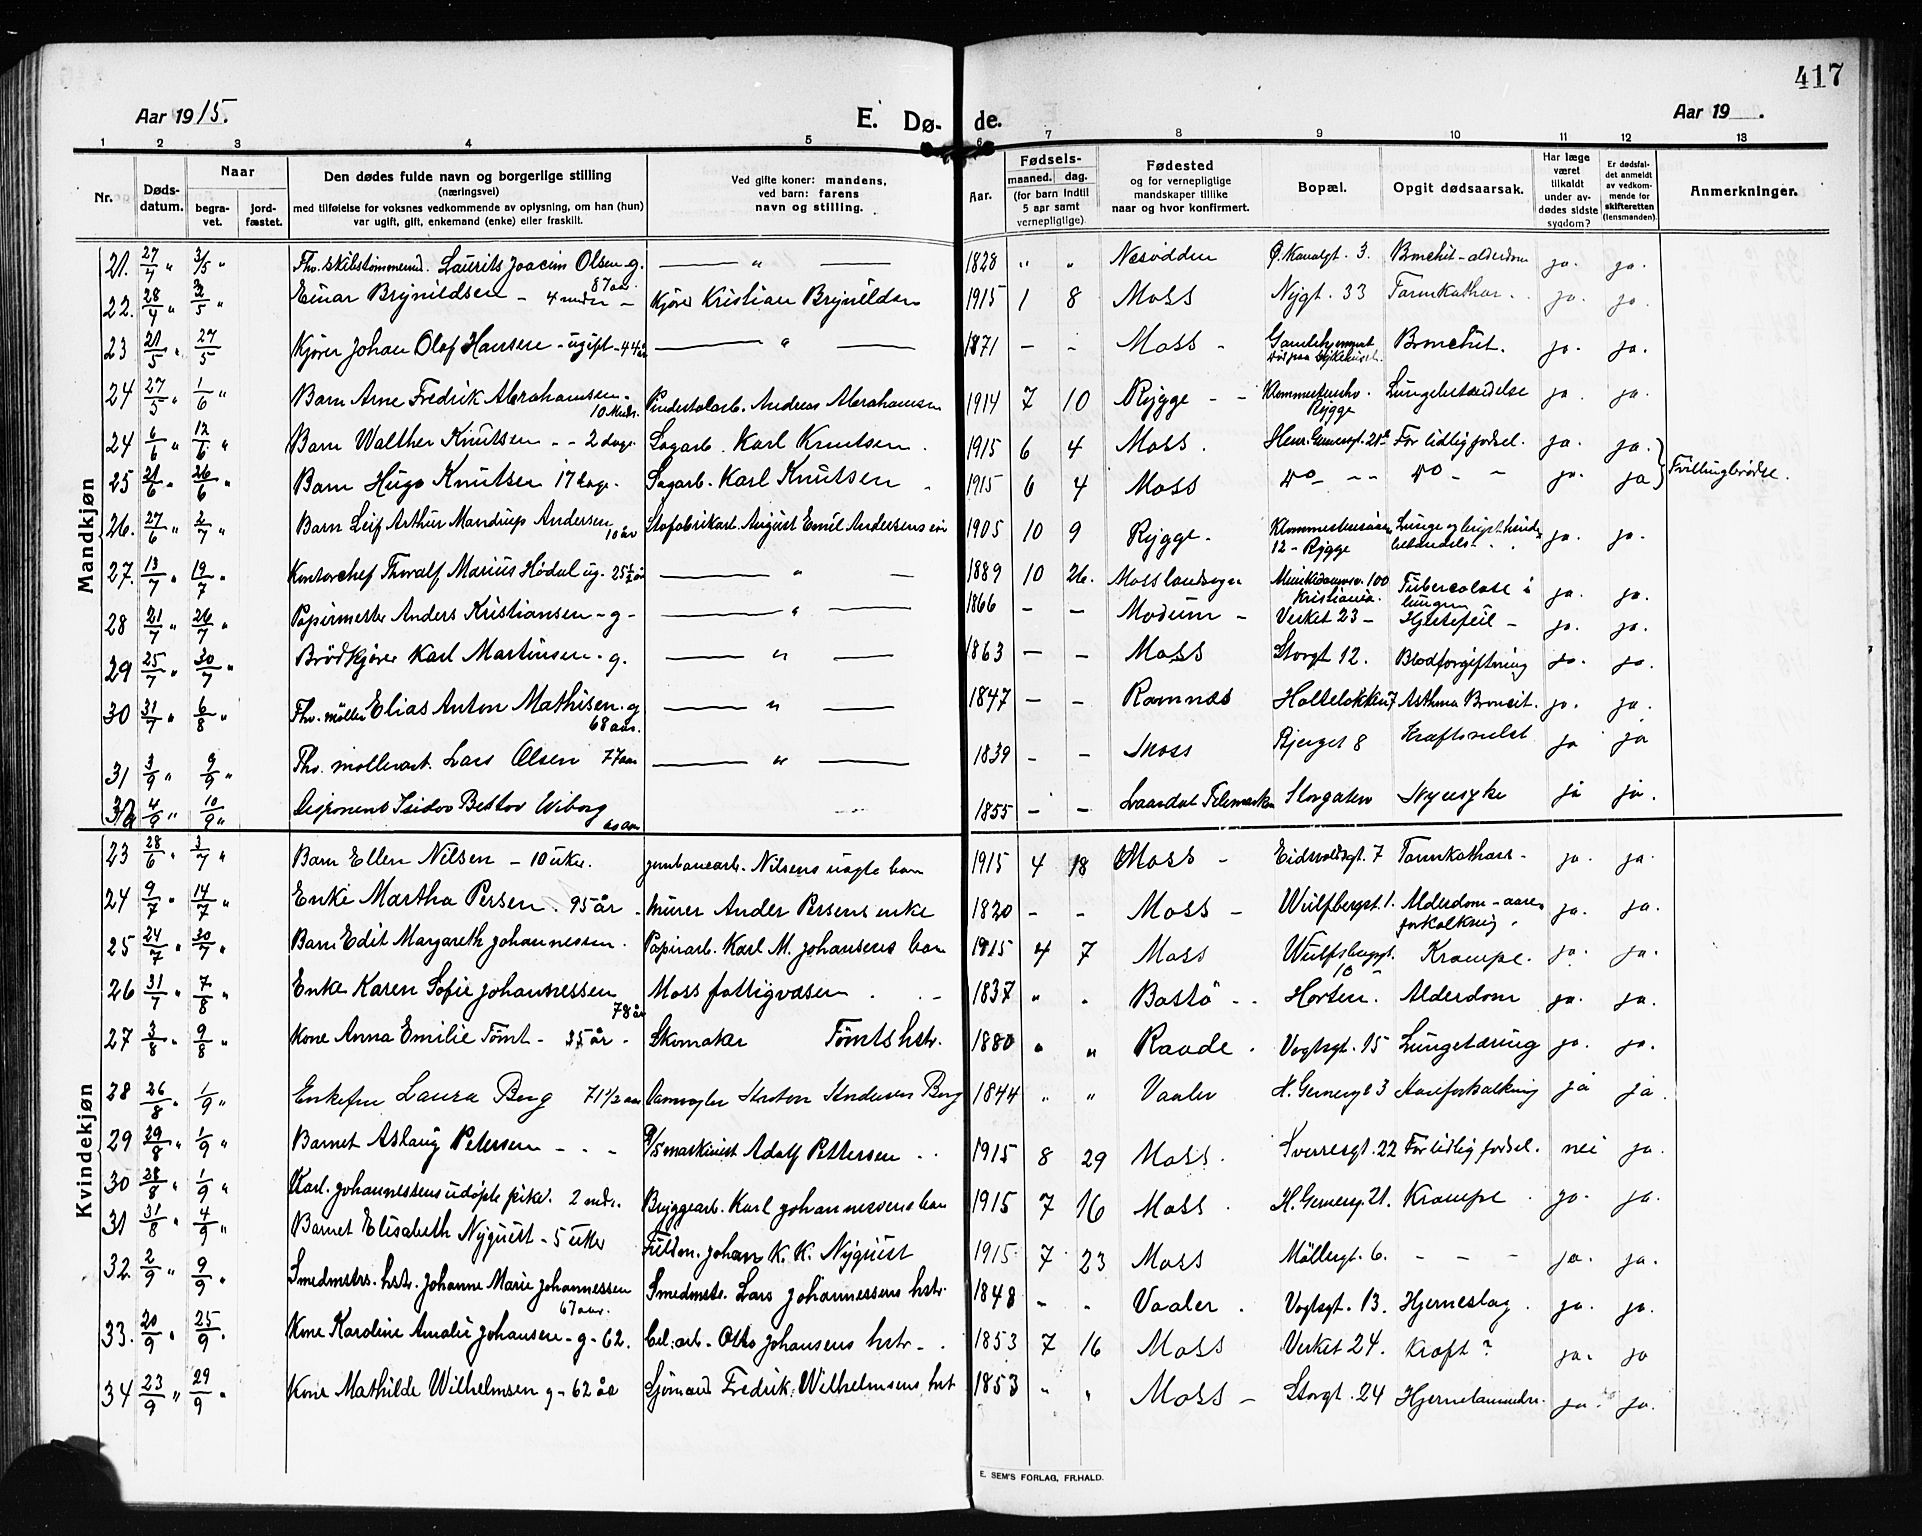 417
Aar 1915.
E. Dø-
de.
Aar 19 .
1 2 3 4 5 6 7 8 9 10 11 12 13
Nr.
Døds-
datum.
Naar
begra-
vet.
jord-
fæstet.
Den dødes fulde navn og borgerlige stilling
(næringsvei)
med tilføielse for voksnes vedkommende av oplysning, om han (hun)
var ugift, gift, enkemand (enke) eller fraskilt.
Ved gifte koner: mandens,
ved barn: farens
navn og stilling.
Aar.
Fødsels-
maaned. dag.
(for barn indtil
5 aar samt
vernepligtige).
Fødested
og for vernepligtige
mandskaper tillike
naar og hvor konfirmert.
Bopæl.
Opgit dødsaarsak.
Har læge
været
tilkaldt
under av-
dødes sidste
sygdom?
Er dødsfal-
det anmeldt
av vedkom-
mende for
skifteretten
(lensmanden).
Anmerkninger.
Mandkjøn
21. 27/4 " 3/5 " Fhv. skibstømmermd. Laurits Joacim Olsen g. 87 aar. — " — 1828 " " Nesodden Ø. Kanalgt. 3. Bronchit - alderdom ja. ja.
22. 28/4 " 3/5 " Einar Brynildsen - 4 mdr - Kjører Kristian Brynildsen 1915 1 8 Moss Nygt. 33 Tarmkathar. ja. ja.
23 21/5 " 27/5 Kjører Johan Olaf Hansen - ugift - 44 år — " — 1871 - - Moss - Bronchit. ja. ja.
24 27/5 " 1/6 " Barn Arne Fredrik Abrahamsen. 10 mdr. Andreas Abrahamsen 1914 7 10 Rygge - - Rygge Lungebetændelse ja. ja.
24 6/6 " 12/6 " Barn Walther Knutsen - - 2 dage Sagarb. Karl Knutsen. 1915 6 4 Moss. Henr. Gernersgt. 21 For tidlig fødsel. ja. ja.
25 21/6 " 26/6 " Barn Hugo Knutsen 17 dage. Sagarb. Karl Knutsen 1915 6 4 Moss do - - do - - ja. ja Tvillingbrødre.
26. 27/6 " 2/7 " Barn Leif Arthur Mandrup Andersen 10 år August Emil Andersens søn 1905 10 9 Rygge. 12 - Rygge ja. ja.
27. 13/7 " 19/7 " Kontorchef Thoralf Marius Hødal ug. 25 1/2 år — " — 1889 10 26. Moss landsogn Munkedamsv. 100 Kristiania. Tuberculose i lungen ja. ja.
28 21/7 " 26/7 " Papirmester Anders Kristiansen - g - — " — 1866 - - Modum - Verket 23 - Hjertefeil - ja. ja.
29 25/7 " 30/7 " Brödkjører Karl Martinsen - g. — " — 1863 - - Moss Storgt 12. Blodforgiftning ja. ja.
30 31/7 " 6/8 " Fhv. møller Elias Anton Mathisen - g 68 aar. — " — 1847 - - Ramnæs Holteløkken 7 Asthma Broncit. ja. ja.
31 3/9 " 9/9 " Fhv. møllerarb. Lars Olsen 77 aar — " — 1839 - - Moss Bjerget 8 Kræftsvulst ja ja
32 4/9 " 10/9 " Disponent Isidor Wiborg 60 aar 1855 - - Laardal Telemarken Storgaten Nyresyke ja ja.
Kvindekjøn
23 28/6 " 3/7 " Barn Ellen Nilsen - 10 uker. Jernbanearb. Nilsens uægte barn 1915 4 18 Moss - Eidsvoldsgt. 7 Tarmkatharr - ja. ja.
24 9/7 " 14/7 " Enke Martha Persen. 95 år - Murer Ander Persens enke 1820 - - Moss - Wulfbergsgt. 1. Alderdom - aareforkalkning. ja. ja.
25 24/7 " 30/7 " Barn Edit Margareth Johannessen. Papirarb. Karl M. Johansens barn 1915 4 7 Moss Wulfsbergsgt. 10 - Krampe. ja. ja.
26 31/7 " 7/8 " Enke Karen Sofie Johannessen 78 år Moss fattigvæsen. - 1837 " " Bastö - - Horten. Alderdom ja. ja.
27 3/8 " 9/8 " Kone Anna Emilie Tömt - 35 år - Skomaker Tömts hstr. 1880 " " Raade. Vogtsgt. 15 Lungetæring ja. ja.
28 26/8 " 1/9 " Enkefru Laura Berg 71 1/2 aar Andersen Berg 1844 " " Vaaler H. Gernersgt 3 Aareforkalkning ja ja.
29 29/8 " 1/9 " Barnet Aslaug Petersen - - - maskinist Adolf Pettersen - - 1915 8 29 Moss. Sverresgt. 22 For tidlig fødsel. nei ja.
30 28/8 " 1/9 " Karl Johannessens udøpte pike. 2 mdr. Bryggearb. Karl Johannessens barn 1915 7 16 Moss. H. Gernersg. 21. Krampe. ja. ja.
31 31/8 " 4/9 " Barnet Elisabeth Nyquist - 5 uker Johan K. K. Nyquist 1915. 7. 23 Moss Möllergt. 6. - - - ja. ja.
32. 2/9 " 9/9 " Smedmstrs. hstr. Johanne Marie Johannessen 67 aar. Smedmstr. Lars Johannessens hstr. 1848 - " Vaaler. Vogtsgt. 13. Hjerneslag. ja. ja.
33. 20/9 " 25/9 " Kone Karoline Amalie Johansen - g - 62. Cel. arb - Otto Johansens hstr - . 1853 7 16 Moss Verket 24. Kræft? ja. ja
34 23/9 " 29/9 " Kone Mathilde Wilhelmsen g - 62 år Sjömand Fredrik Wilhelmsens hst 1853 " " Moss - Storgt. 24 ja. ja.
E. SEM'S FORLAG, FR.HALD.